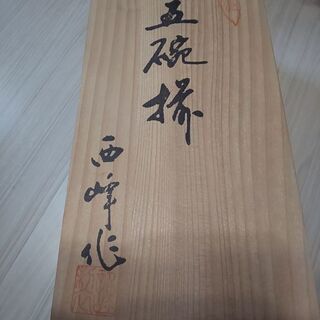 五碗揃
西峰作